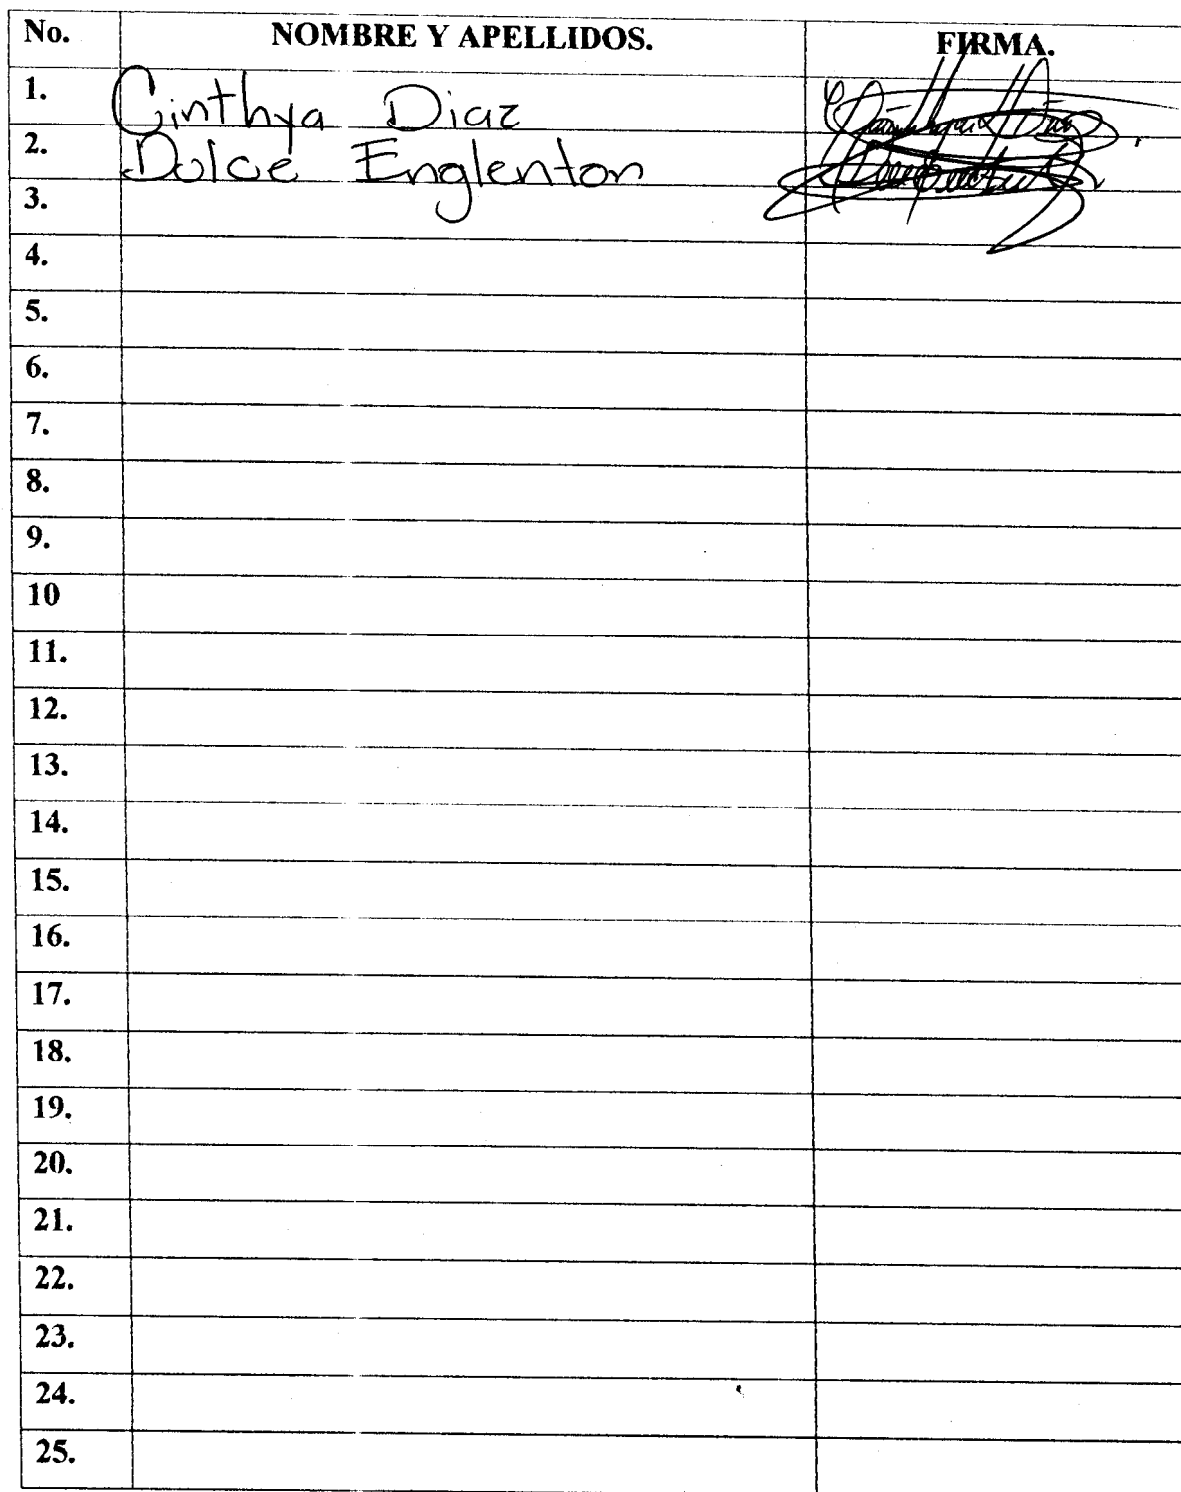 No. NOMBRE Y APELLIDOS. FIRMA.
1. Cinthya Diaz
2. Dulce Englenton
3.
4.
5.
6.
7.
8.
9.
10
11.
12.
13.
14.
15.
16.
17.
18.
19.
20.
21.
22.
23.
24.
25.